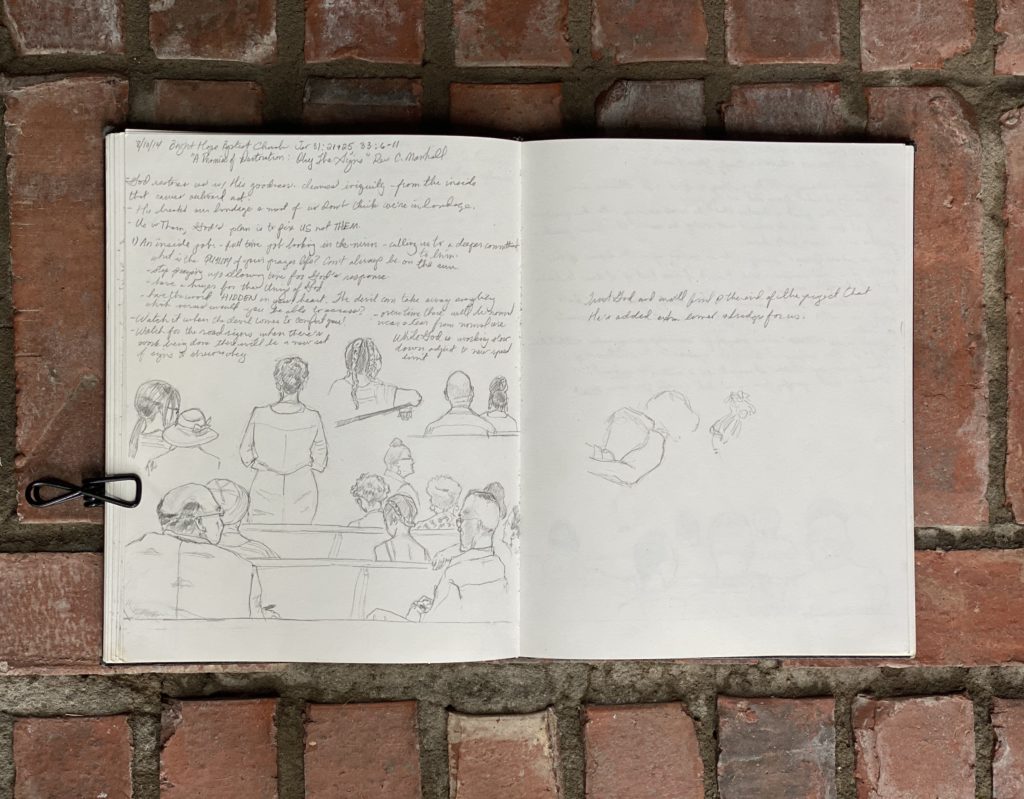 8/10/14 Bright Hope Baptist Church Jer 31:21+25 33:6-11
"A Promise of Restoration: Obey The Signs" Rev C. Marshall
-God restores us w/ His goodness. cleanses iniquity - from the inside
that causes outward act.
- His created our bondage + most of us don't think we're in bondage.
- Us v Them, God's plan is to fix US not THEM.
1) An inside job - full time job looking in the mirror - calling us to a deeper commitment
to him.
what is the of your prayer life? Can't always be on the run
- stop praying w/o allowing time for God's response
- have a hunger for the things of God
- have the word HIDDEN in your heart. The devil can take away everything
what verses would you be able to access? - over time there will be
wear + tear from normal use
- Watch it when the devil comes to comfort you!
- Watch for the road signs when there's
work being done there will be a new set
of signs to obey
While God is working slow
down adjust to new speed
limit
Trust God and we'll find @ the end of the project that
He's added extra for us.